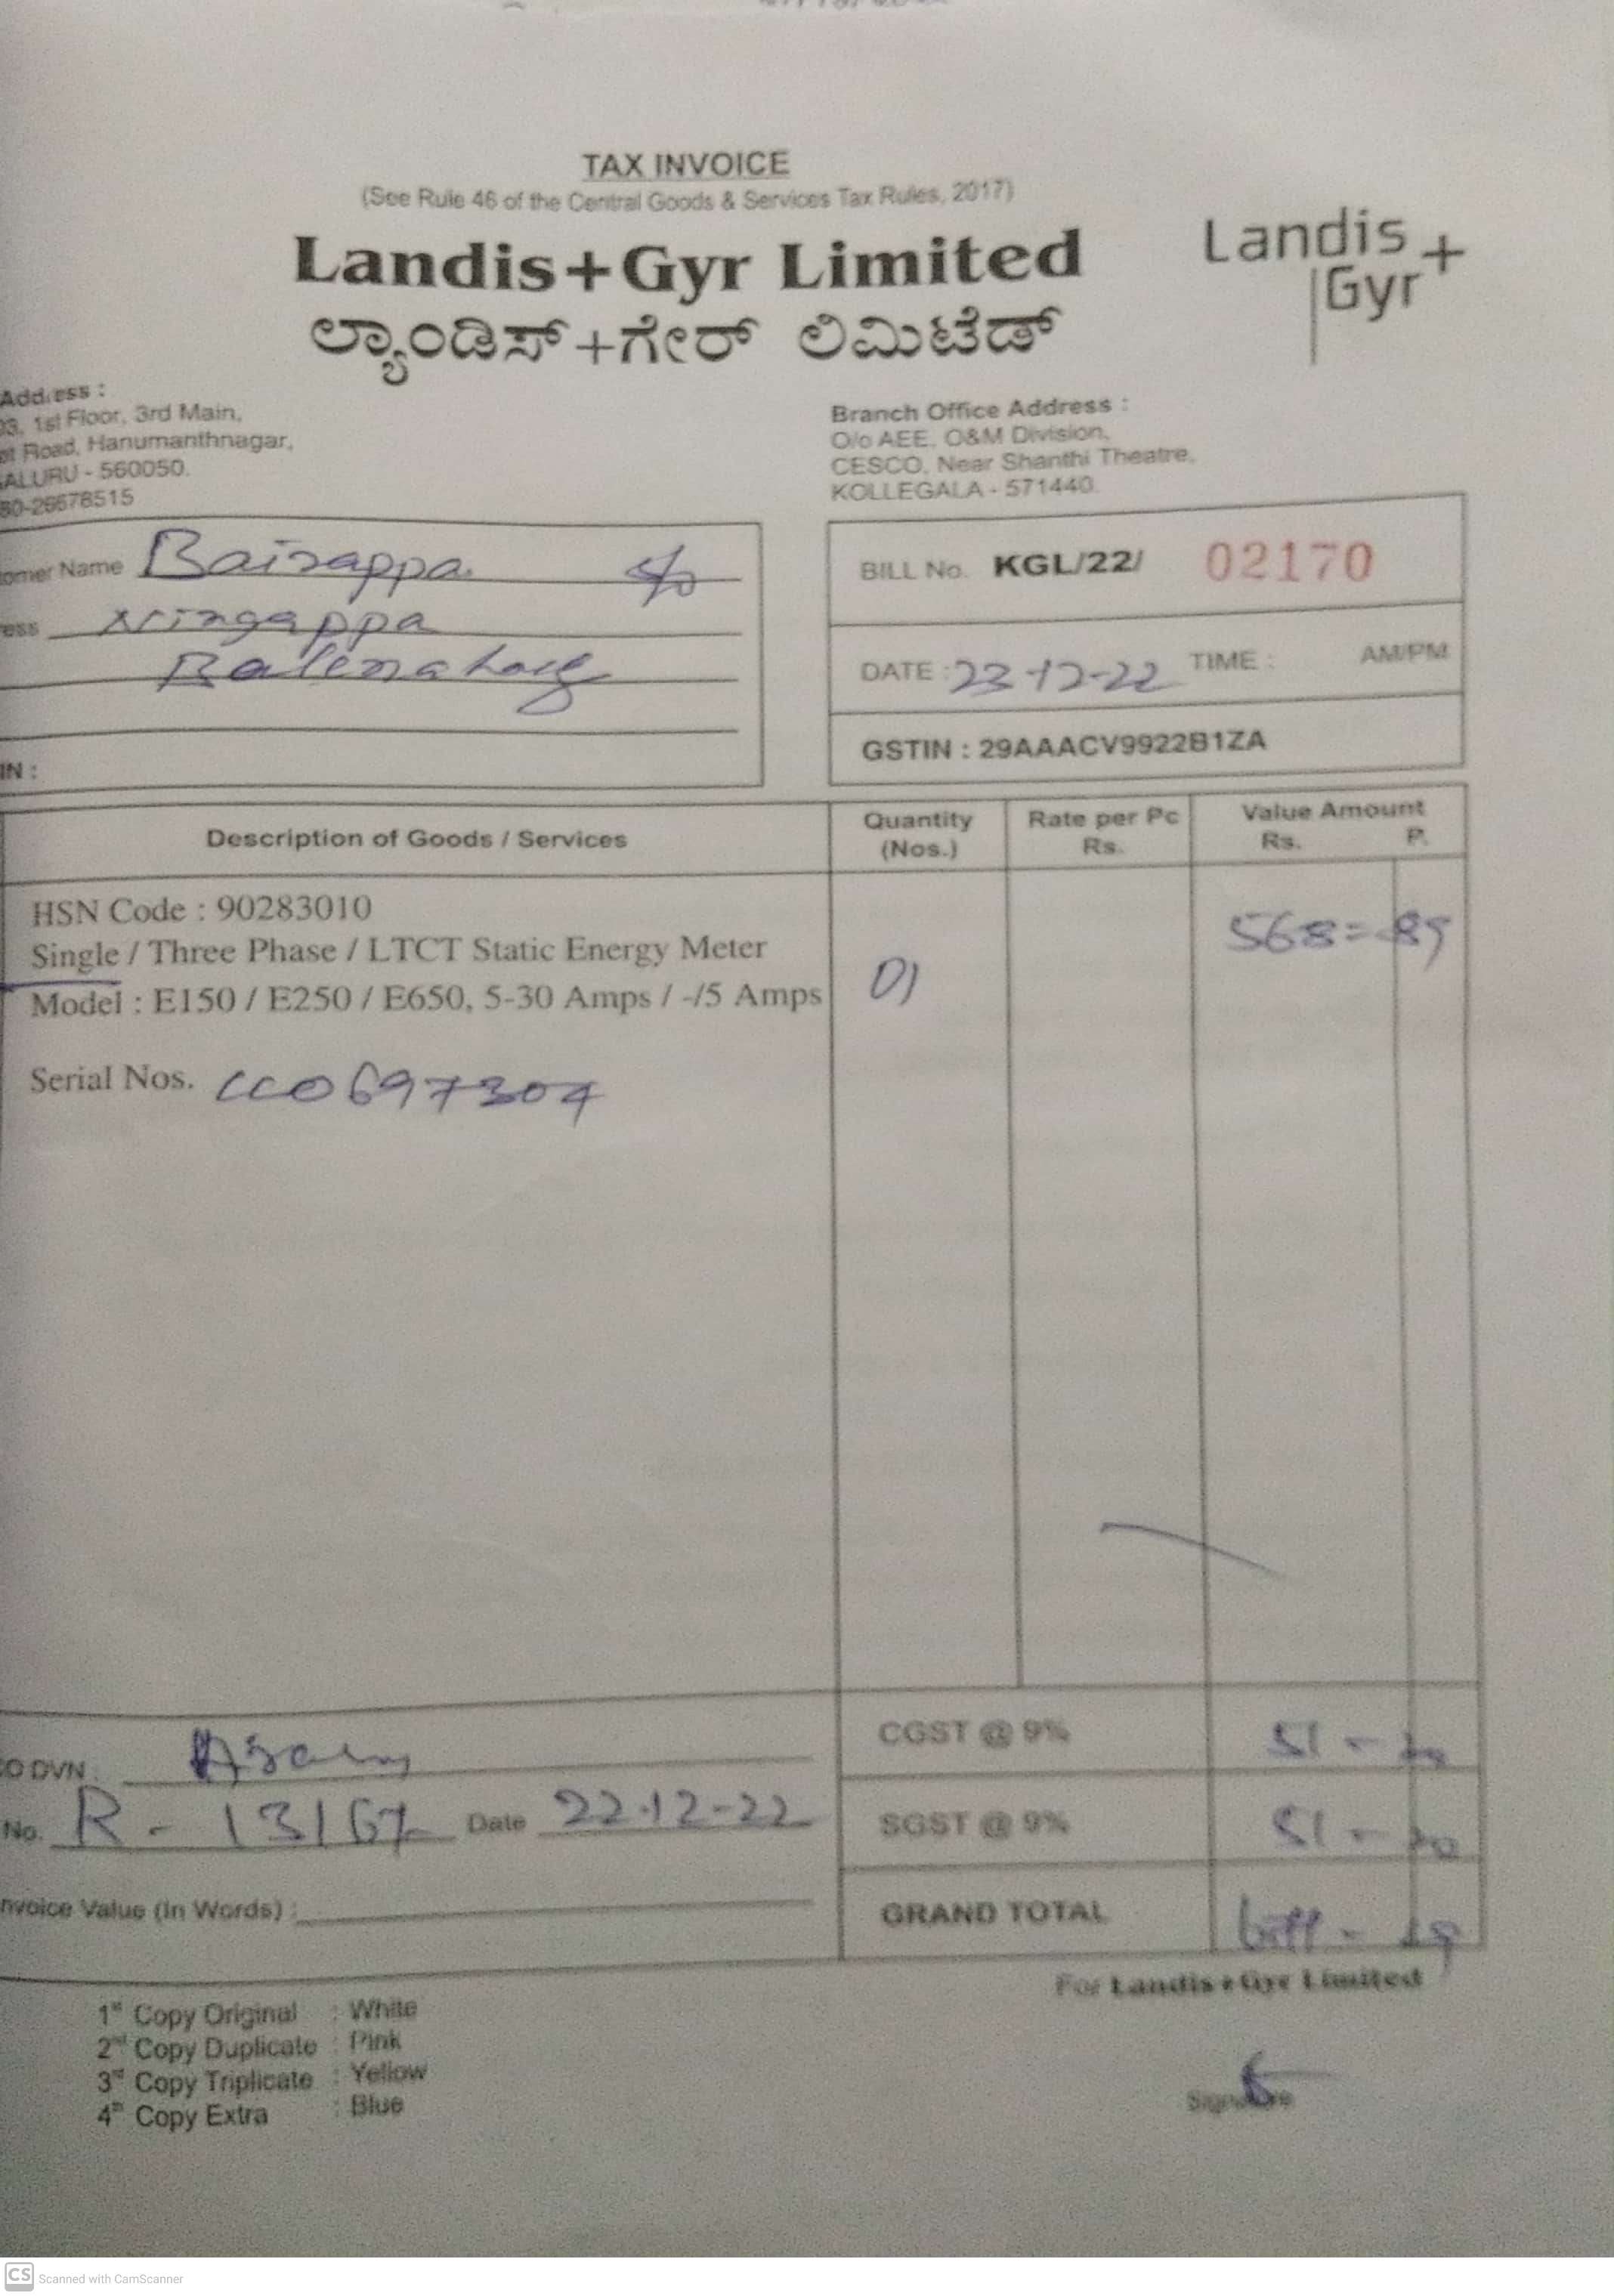 TAX INVOICE
(See Rule 46 of the Central Goods & Services Tax Rules, 2017)
Landis+Gyr Limited
ಲ್ಯಾಂಡಿಸ್+ಗೇರ್ ಲಿಮಿಟೆಡ್
Landis+
Gyr
Address :
03, 1st Floor, 3rd Main,
Road, Hanumanthnagar,
ALURU - 560050.
80-26678515
Branch Office Address :
O/o AEE, O&M Division,
CESCO, Near Shanthi Theatre,
KOLLEGALA - 571440.
omer Name Bairappa S/o
ess Ningappa
IN :
BILL No. KGL/22/ 02170
DATE : 23-12-22 TIME : AM/PM
GSTIN : 29AAACV9922B1ZA
Description of Goods / Services Quantity (Nos.) Rate per Pc Rs. Value Amount Rs. P.
HSN Code : 90283010
Single / Three Phase / LTCT Static Energy Meter 01 568=89
Model : E150 / E250 / E650, 5-30 Amps / -/5 Amps
Serial Nos. CC0697304
O DVN
No. R - 13167 Date 22-12-22
nvoice Value (In Words) :
CGST @ 9% 51 - 20
SGST @ 9% 51 - 20
GRAND TOTAL
For Landis+Gyr Limited
1st Copy Original : White
2nd Copy Duplicate : Pink
3rd Copy Triplicate : Yellow
4th Copy Extra : Blue
Signature
CS Scanned with CamScanner